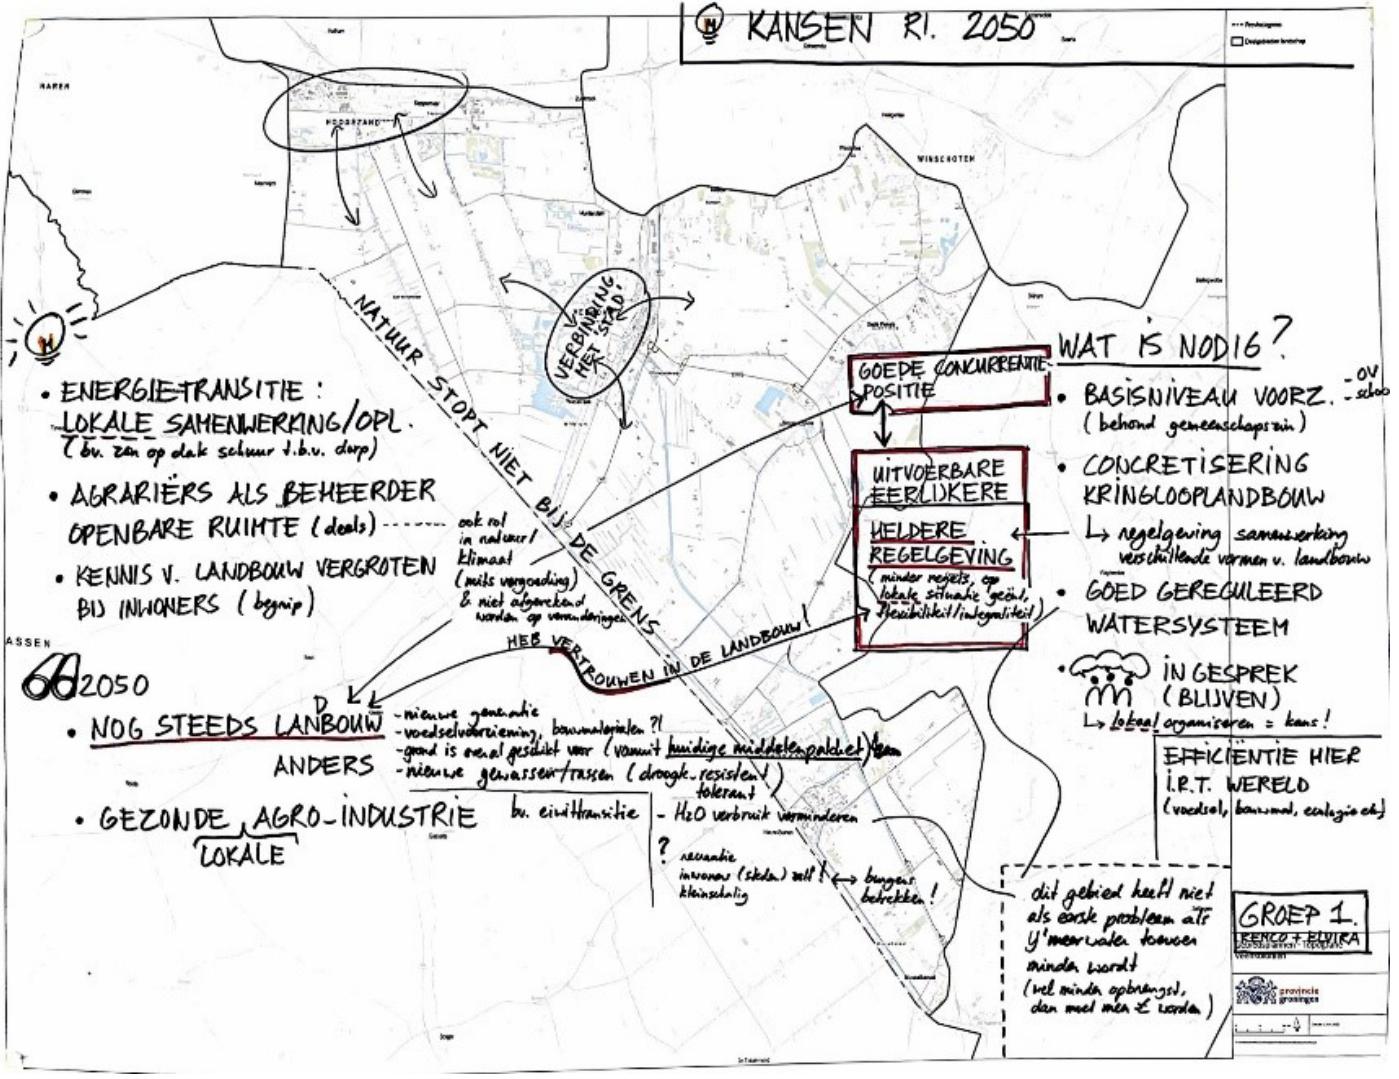 KANSEN RI. 2050
HAREN
HOOGEZAND
WINSCHOTEN
NATUUR STOPT NIET BIJ DE GRENS
VERBINDING
MET 'STAD'
• ENERGIETRANSITIE :
LOKALE SAMENWERKING/OPL.
(bv. zon op dak schuur t.b.v. dorp)
• AGRARIËRS ALS BEHEERDER
OPENBARE RUIMTE (deals)
ook rol
in natuur/
klimaat
(mits vergoeding)
& niet afgerekend
worden op veranderingen
• KENNIS V. LANDBOUW VERGROTEN
BIJ INWONERS (begrip)
ASSEN
HEB VERTROUWEN IN DE LANDBOUW!
2050
D
• NOG STEEDS LANBOUW
ANDERS
- nieuwe generatie
- voedselvoorziening, bouwmaterialen ?!
- grond is overal geschikt voor (vanuit huidige middelenpakket)
- nieuwe gewassen/rassen (droogte-resistent
tolerant)
• GEZONDE AGRO-INDUSTRIE
LOKALE
bv. eiwittransitie
- H2O verbruik verminderen
? recreatie
inwoners (steden) zelf!
kleinschalig
↔ burgers
betrekken!
GOEDE CONCURRENTIE-
POSITIE
UITVOERBARE
EERLIJKERE
HELDERE
REGELGEVING
(minder regels, op
lokale situatie geënt,
flexibiliteit/integraliteit)
WAT IS NODIG?
• BASISNIVEAU VOORZ.
- OV
- schoo
(behoud gemeenschapszin)
• CONCRETISERING
KRINGLOOPLANDBOUW
↳ regelgeving samenwerking
verschillende vormen v. landbouw
• GOED GEREGULEERD
WATERSYSTEEM
• IN GESPREK
(BLIJVEN)
↳ lokaal organiseren = kans!
EFFICIËNTIE HIER
I.R.T. WERELD
(voedsel, bouwmat, ecologie etc)
dit gebied heeft niet
als eerste probleem als
IJ'meerwater toevoer
minder wordt
(wel minder opbrengst,
dan moet men € worden)
GROEP 1.
REMCO + ELVIRA
provincie
groningen